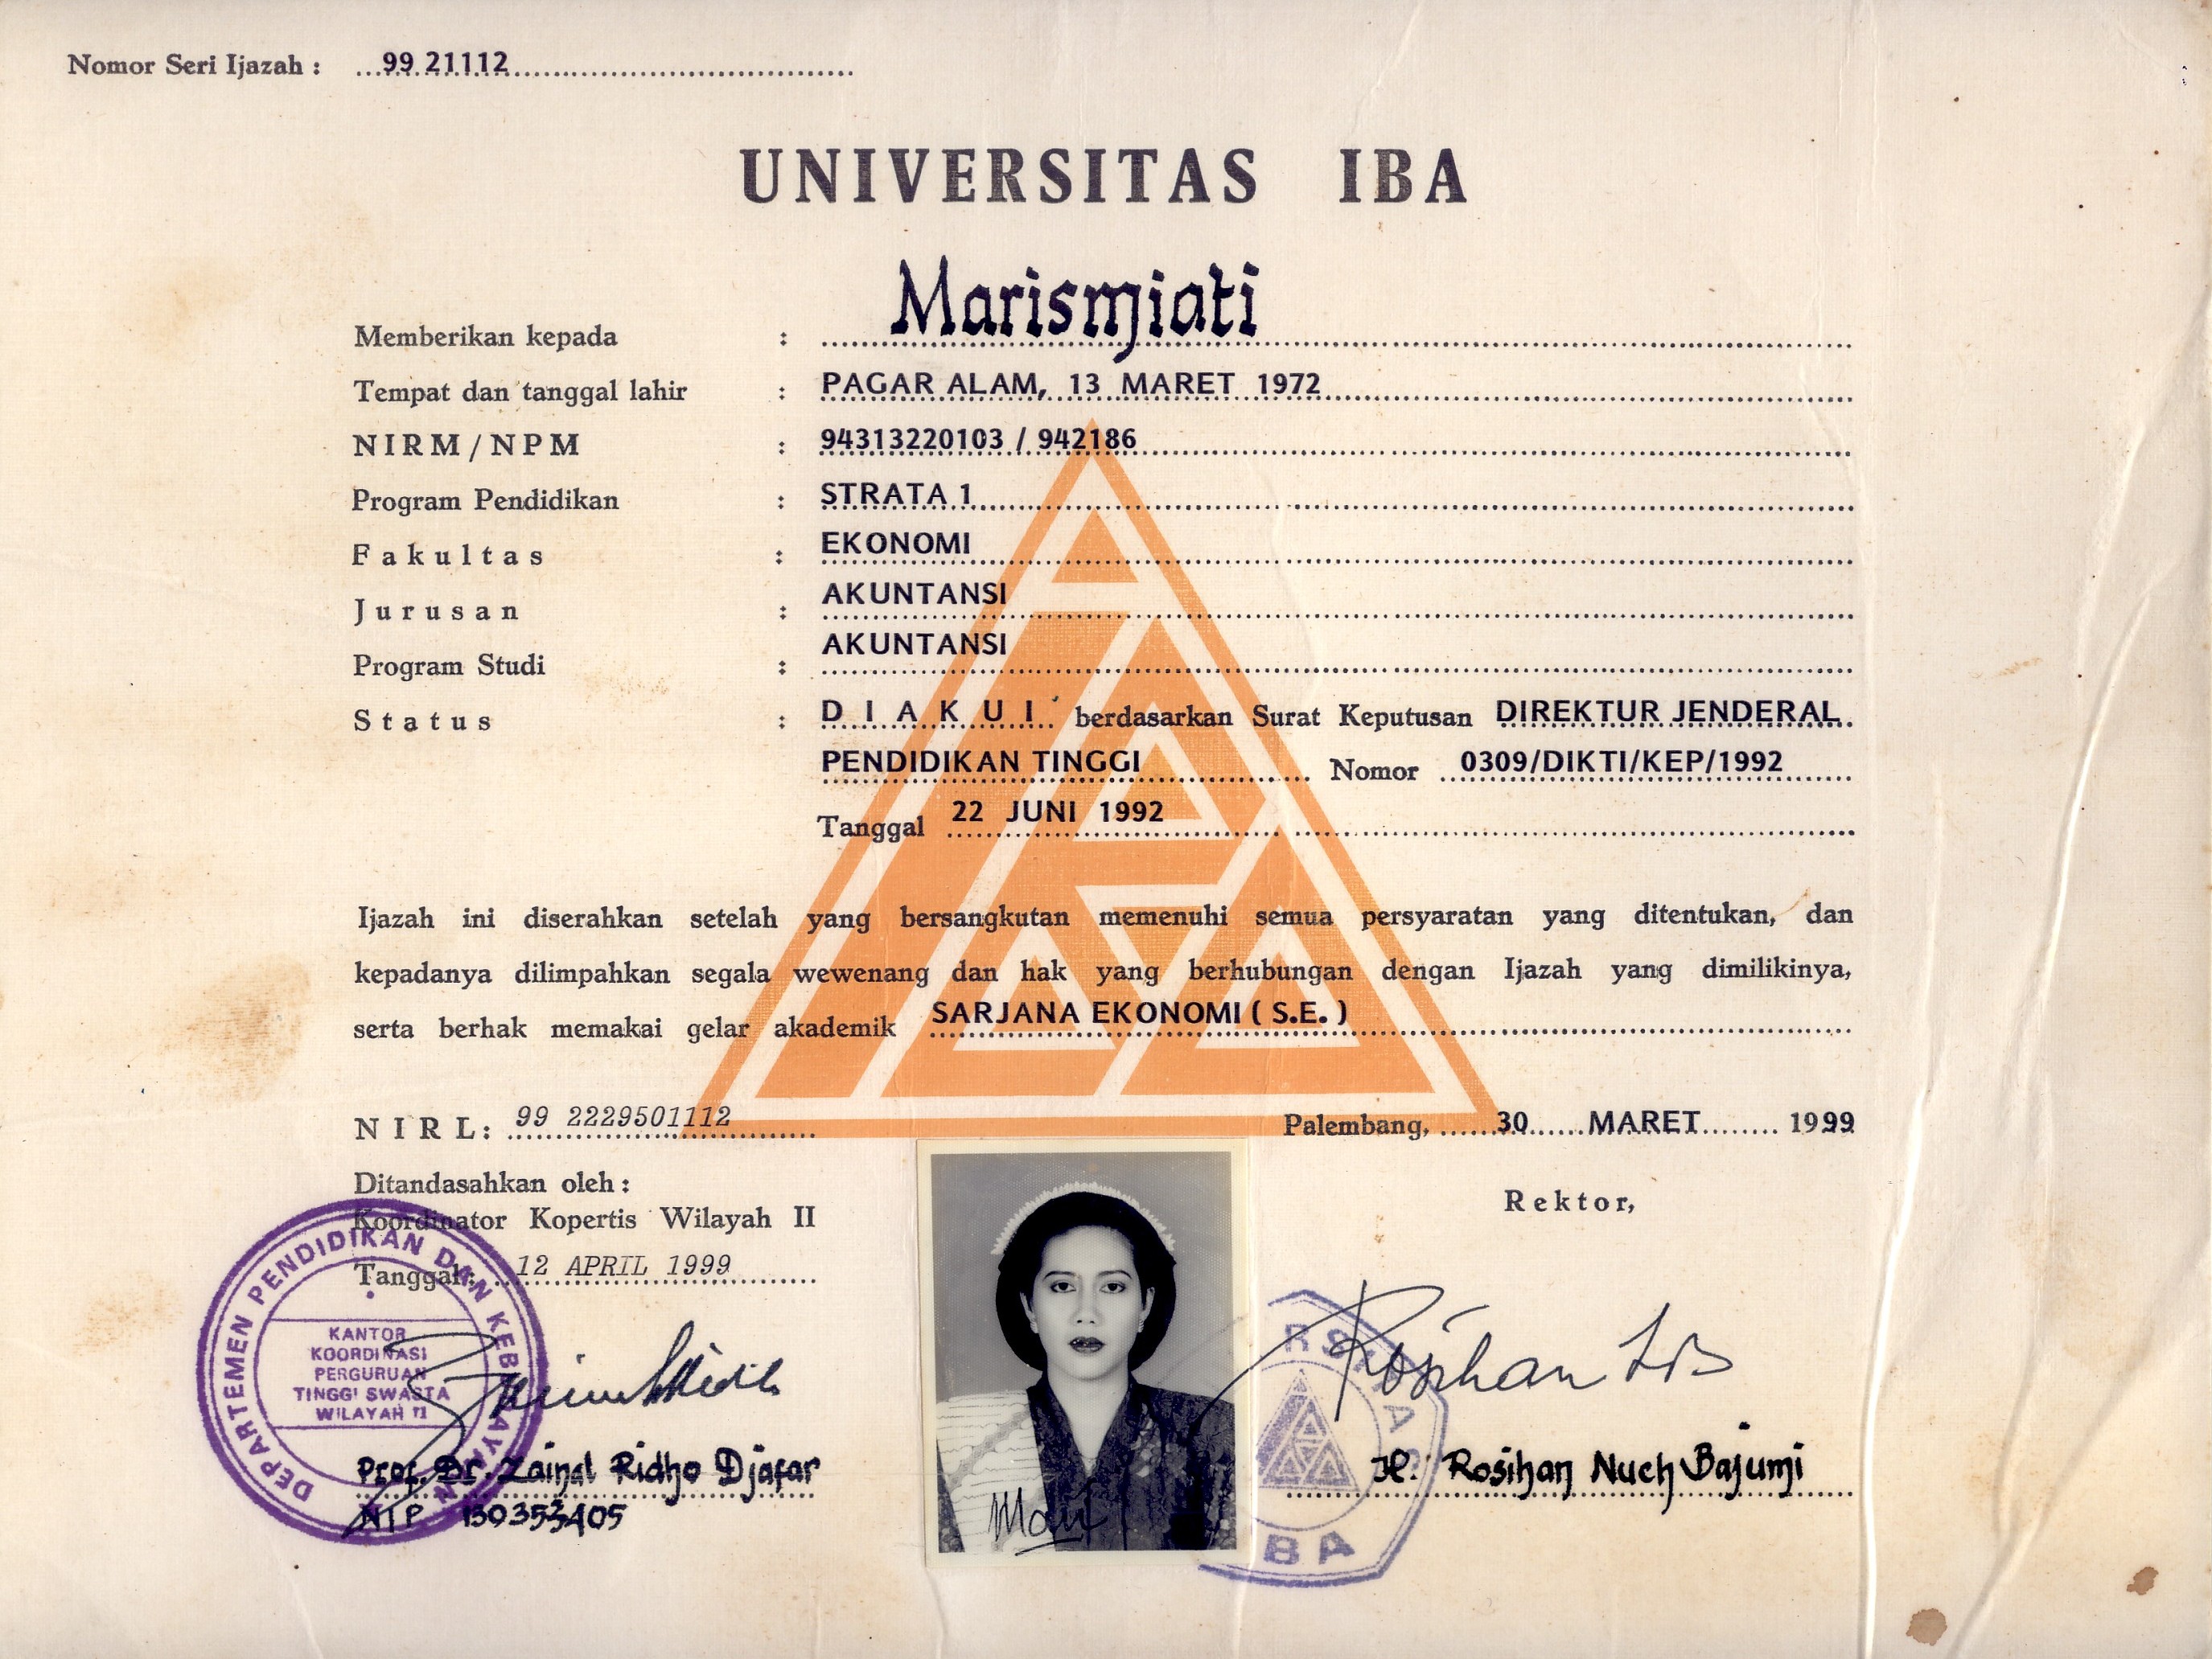 Nomor Seri Ijazah : 99 21112
UNIVERSITAS IBA
Memberikan kepada : Marismiati
Tempat dan tanggal lahir : PAGAR ALAM, 13 MARET 1972
NIRM/NPM : 94313220103 / 942186
Program Pendidikan : STRATA 1
Fakultas : EKONOMI
Jurusan : AKUNTANSI
Program Studi : AKUNTANSI
Status : DIAKUI berdasarkan Surat Keputusan DIREKTUR JENDERAL
PENDIDIKAN TINGGI Nomor 0309/DIKTI/KEP/1992
Tanggal 22 JUNI 1992
Ijazah ini diserahkan setelah yang bersangkutan memenuhi semua persyaratan yang ditentukan, dan
kepadanya dilimpahkan segala wewenang dan hak yang berhubungan dengan Ijazah yang dimilikinya,
serta berhak memakai gelar akademik SARJANA EKONOMI ( S.E. )
NIRL: 99 2229501112
Palembang, 30 MARET 1999
Ditandasahkan oleh :
Koordinator Kopertis Wilayah II
Tanggal : 12 APRIL 1999
Rektor,
DEPARTEMEN PENDIDIKAN DAN KEBUDAYAAN
KANTOR
KOORDINASI
PERGURUAN
TINGGI SWASTA
WILAYAH II
Prof. Dr. Zainal Ridho Djafar
NIP 130353405
RSITAS
IBA
H. Rosihan Nuch Bajumi